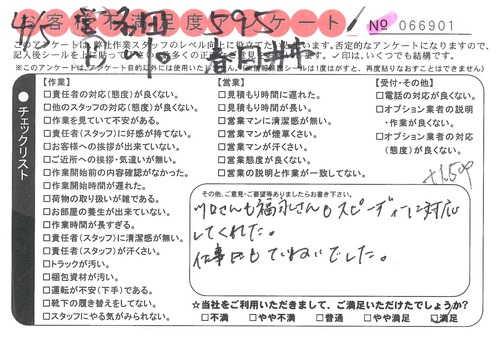 お客様不満足度アンケート
№ 066901
4/5
595
春日井市
このアンケートは弊社作業スタッフのレベル向上に役立てたいと思います。否定的なアンケートになりますので、
※このアンケートは、アンケート目的以外には使用いたしません。個人情報保護シールは1度はがすと、再度貼りなおすことはできません)
チェックリスト
【作業】
□責任者の対応(態度)が良くない。
□他のスタッフの対応(態度)が良くない。
□作業を見ていて不安がある。
□責任者(スタッフ)に好感が持てない。
□お客様への挨拶が出来ていない。
□ご近所への挨拶・気遣いが無い。
□作業開始前の内容確認がなかった。
□作業開始時間が遅れた。
□荷物の取り扱いが雑である。
□お部屋の養生が出来ていない。
□作業時間が長すぎる。
□責任者(スタッフ)に清潔感が無い。
□責任者(スタッフ)が汗くさい。
□トラックが汚い。
□梱包資材が汚い。
□運転が不安(下手)である。
□靴下の履き替えをしてない。
□スタッフにやる気がみられない。
【営業】
□見積もり時間に遅れた。
□見積もり時間が長い。
□営業マンに清潔感が無い。
□営業マンが煙草くさい。
□営業マンが汗くさい。
□営業態度が良くない。
□営業の説明と作業が一致してない。
【受付・その他】
□電話の対応が良くない。
□オプション業者の説明
・作業が良くない。
□オプション業者の対応
(態度)が良くない。
その他、ご意見・ご要望等ありましたらお書き下さい。
さんも福永さんもスピーディーに対応
してくれた。
仕事もていねいでした。
☆当社をご利用いただきまして、ご満足いただけたでしょうか?
□不満 □やや不満 □普通 □やや満足 □満足